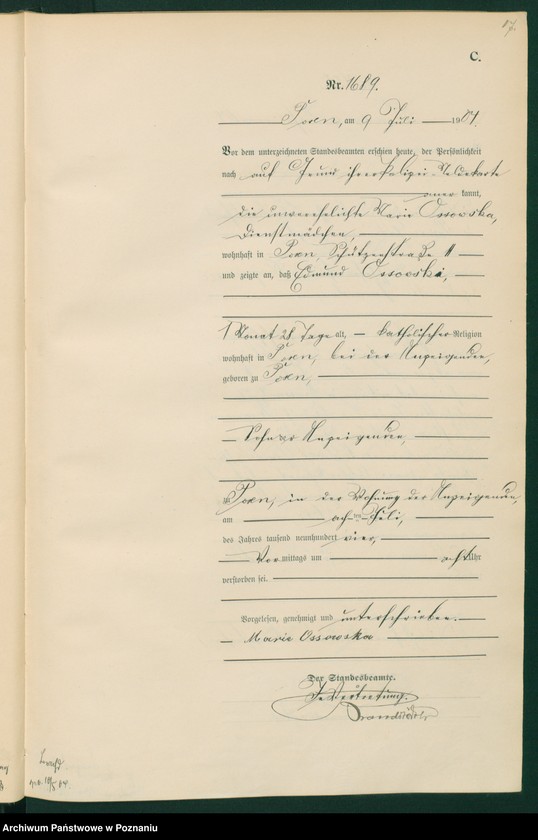 C.
Nr. 1689.
Posen, am 9 Juli 1904.
Vor dem unterzeichneten Standesbeamten erschien heute, der Persönlichkeit
nach auf Grund ihrer Polizei-Meldekarte
anerkannt,
die unverehelichte Marie Ossowska,
Dienstmädchen,
wohnhaft in Posen, Schützenstraße 11
und zeigte an, daß Edmund Ossowski,
1 Monat 28 Tage alt, katholischer Religion
wohnhaft in Posen, bei der Anzeigenden,
geboren zu Posen,
Sohn der Anzeigenden,
zu Posen, in der Wohnung der Anzeigenden,
am achten Juli,
des Jahres tausend neunhundert vier,
Vormittags um acht Uhr
verstorben sei.
Vorgelesen, genehmigt und unterschrieben.
Marie Ossowska
Der Standesbeamte.
In Vertretung.
Archiwum Państwowe w Poznaniu